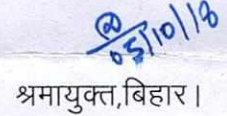 05/10/18
श्रमायुक्त,बिहार।